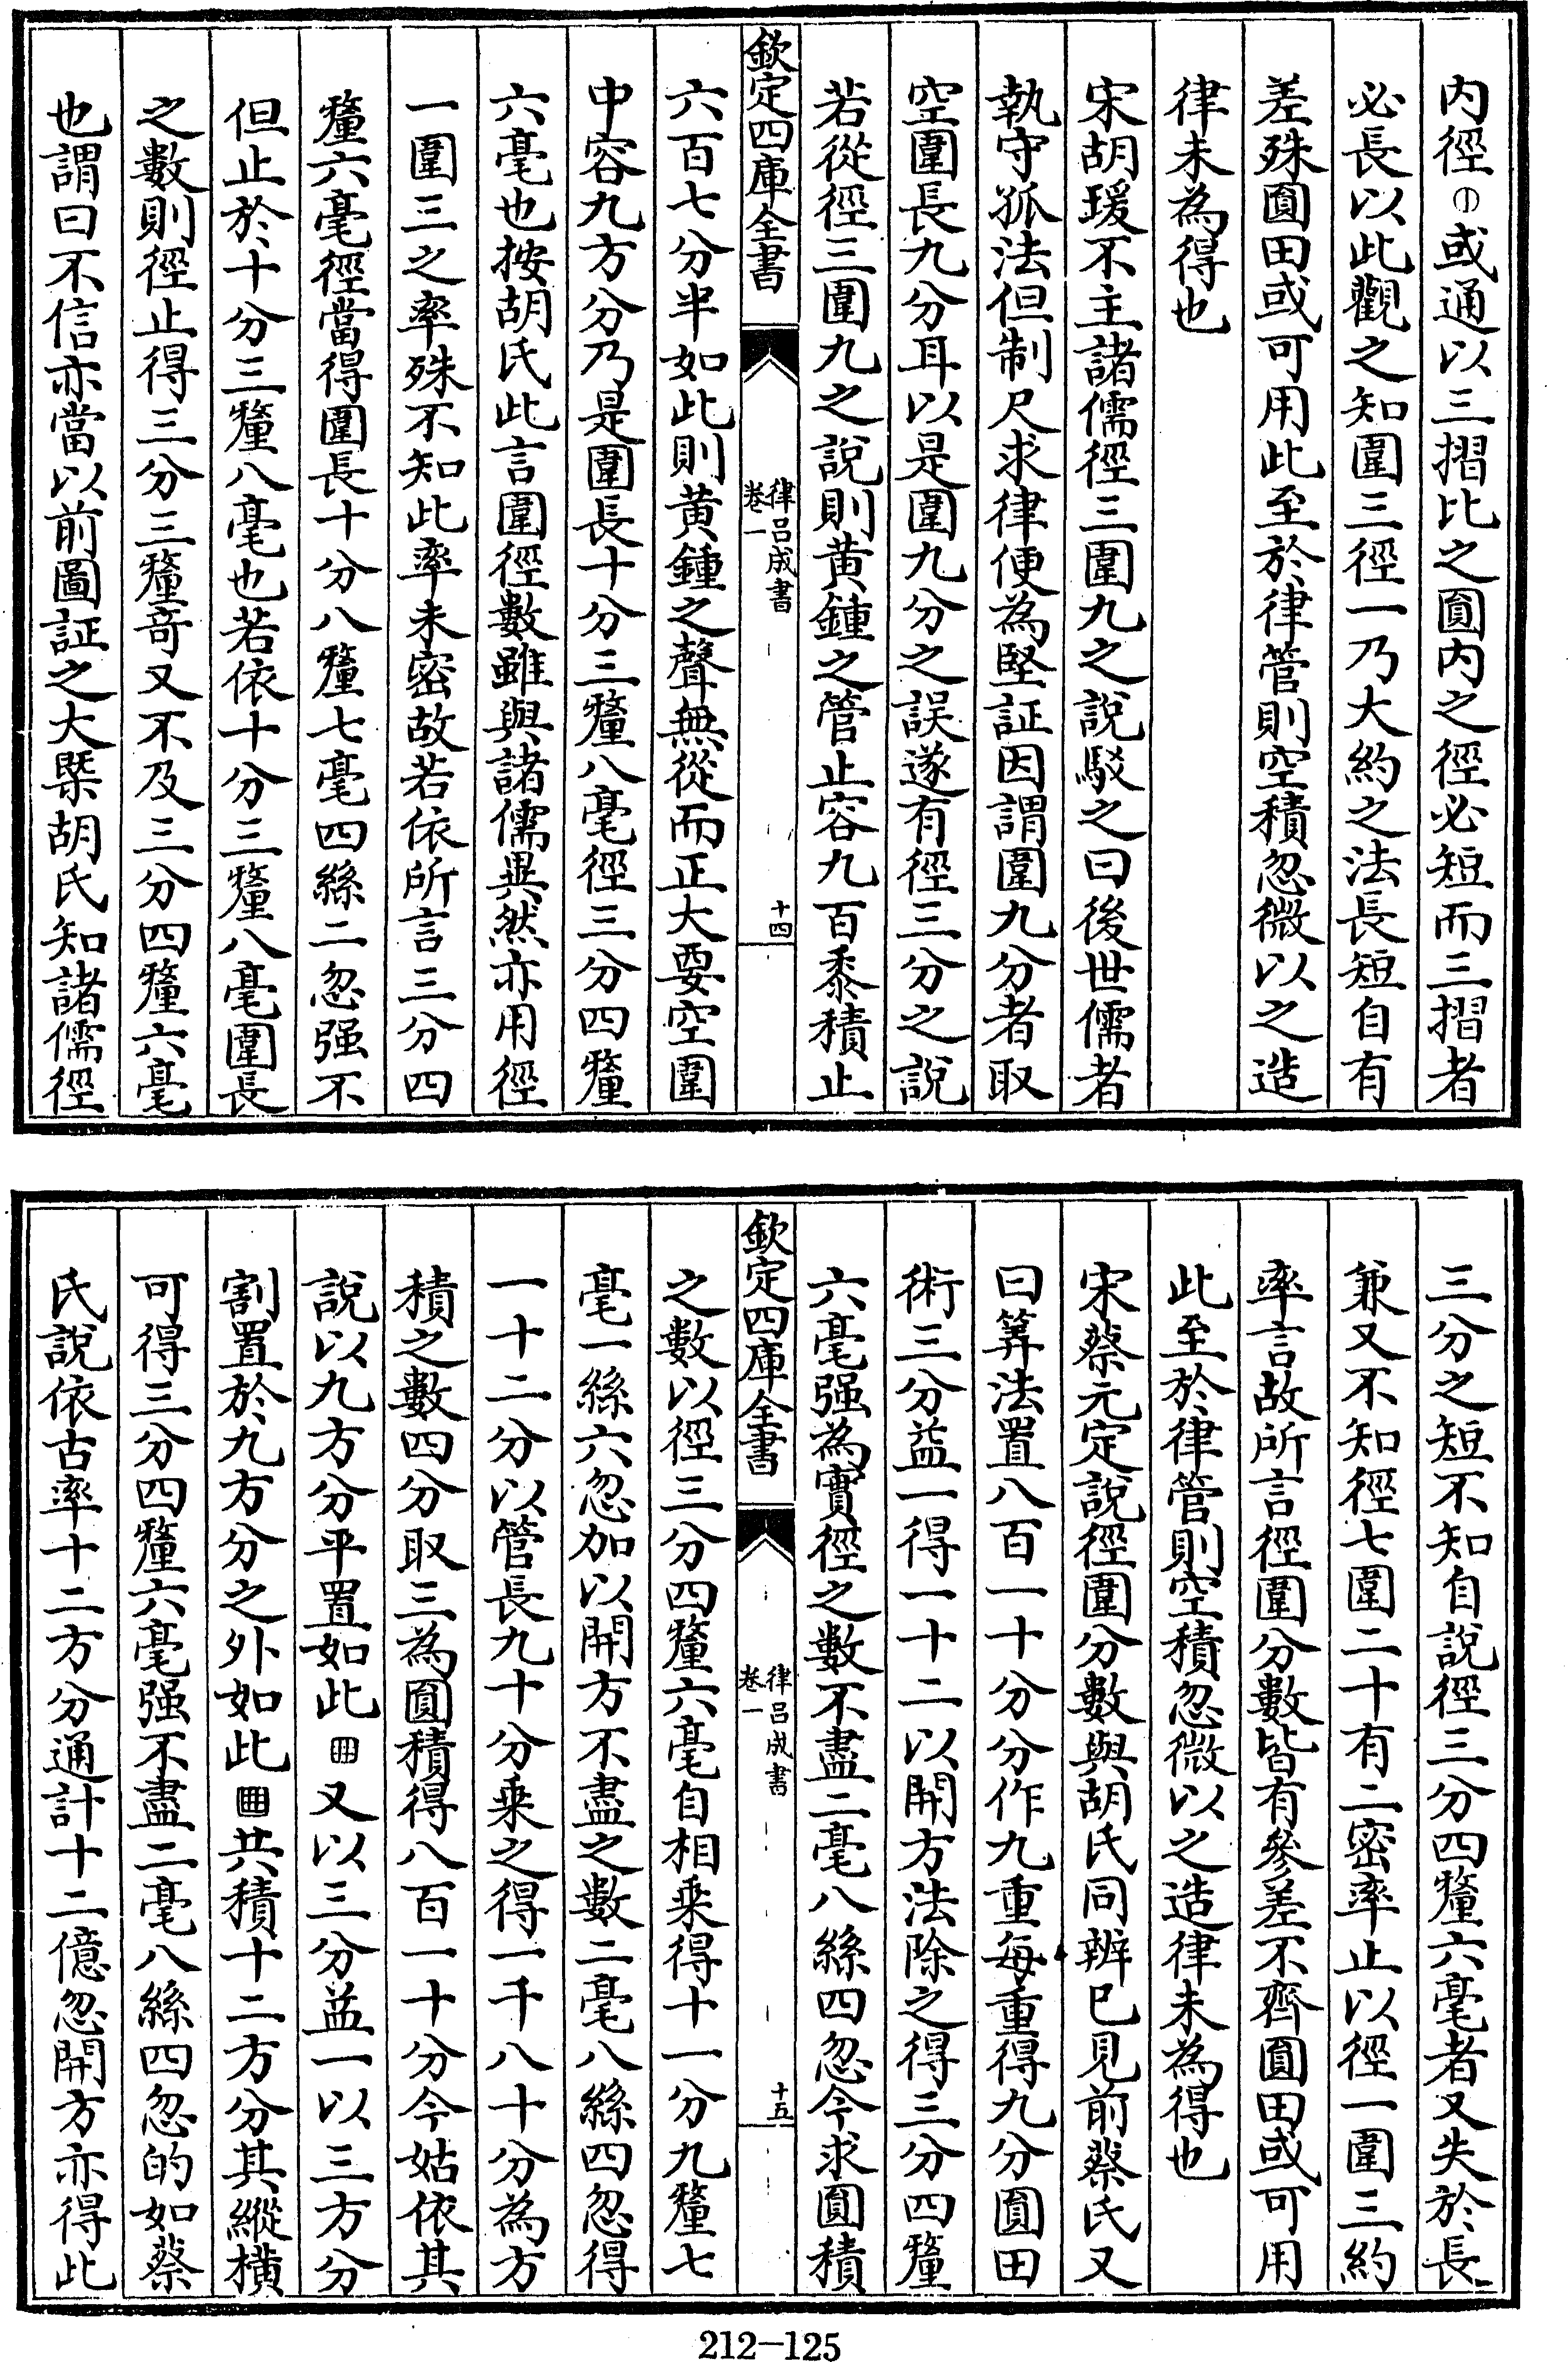 內徑或通以三摺比之圎內之徑必短而三摺者
必長以此觀之知圍三徑一乃大約之法長短自有
差殊圎田或可用此至於律管則空積忽微以之造
律未為得也
宋胡瑗不主諸儒徑三圍九之說駁之曰後世儒者
執守孤法但制尺求律便為堅証因謂圍九分者取
空圍長九分耳以是圍九分之誤遂有徑三分之說
若從徑三圍九之說則黄鍾之管止容九百黍積止
欽定四庫全書
律呂成書
卷一
十四
六百七分半如此則黄鍾之聲無從而正大要空圍
中容九方分乃是圍長十分三釐八毫徑三分四釐
六毫也按胡氏此言圍徑數雖與諸儒異然亦用徑
一圍三之率殊不知此率未密故若依所言三分四
釐六毫徑當得圍長十分八釐七毫四絲二忽强不
但止於十分三釐八毫也若依十分三釐八毫圍長
之數則徑止得三分三釐竒又不及三分四釐六毫
也謂曰不信亦當以前圖証之大槩胡氏知諸儒徑
三分之短不知自說徑三分四釐六毫者又失於長
兼又不知徑七圍二十有二密率止以徑一圍三約
率言故所言徑圍分數皆有參差不齊圎田或可用
此至於律管則空積忽微以之造律未為得也
宋蔡元定說徑圍分數與胡氏同辨已見前蔡氏又
曰筭法置八百一十分分作九重每重得九分圎田
術三分益一得一十二以開方法除之得三分四釐
六毫强為實徑之數不盡二毫八絲四忽今求圎積
欽定四庫全書
律呂成書
卷一
十五
之數以徑三分四釐六毫自相乗得十一分九釐七
毫一絲六忽加以開方不盡之數二毫八絲四忽得
一十二分以管長九十分乗之得一千八十分為方
積之數四分取三為圎積得八百一十分今姑依其
說以九方分平置如此又以三分益一以三方分
割置於九方分之外如此共積十二方分其縱橫
可得三分四釐六毫强不盡二毫八絲四忽的如蔡
氏說依古率十二方分通計十二億忽開方亦得此
212—125